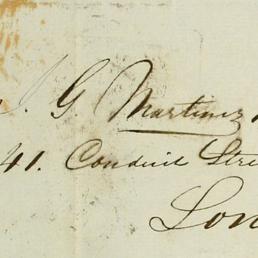 J. G. Martinez
41. Conduit Stre
Lon